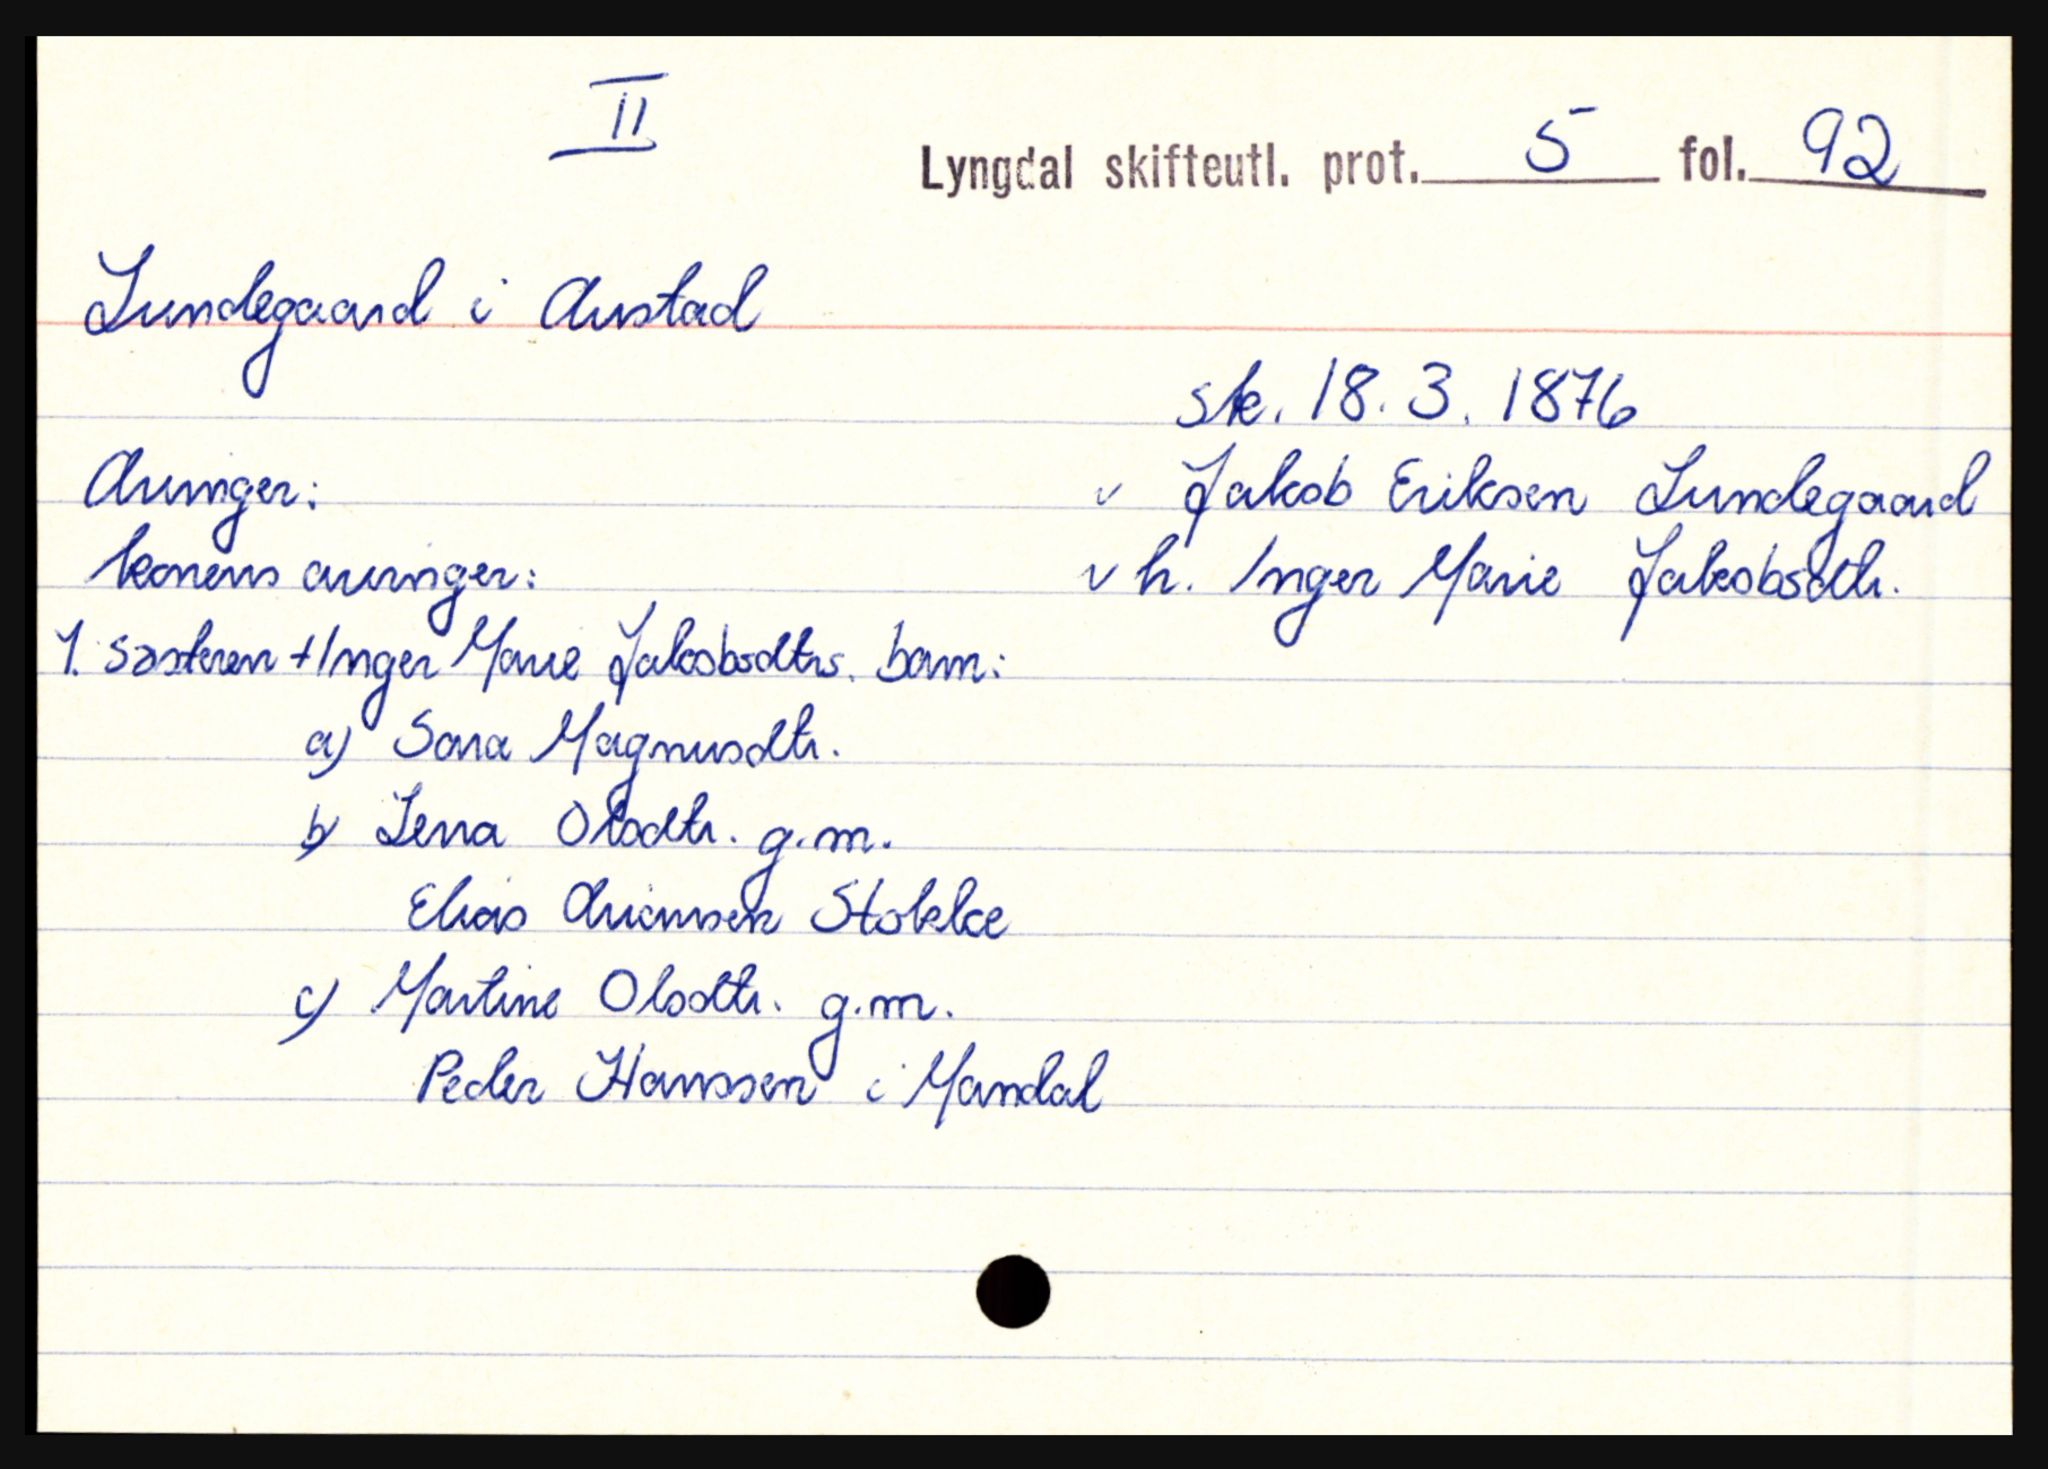 II
Lyngdal skifteutl. prot. 5 fol. 92
Lundegaard i Austad
sk. 18.3.1876
Arvinger:
v Jakob Eriksen Lundegaard
konens arvinger:
v h. Inger Marie Jakobsdtr.
1. søsteren + Inger Marie Jakobsdtrs. barn:
a) Sara Magnusdtr.
b) Lena Olsdtr. g.m.
Elias Ariansen Stokke
c) Martine Olsdtr. g.m.
Peder Hanssen i Mandal